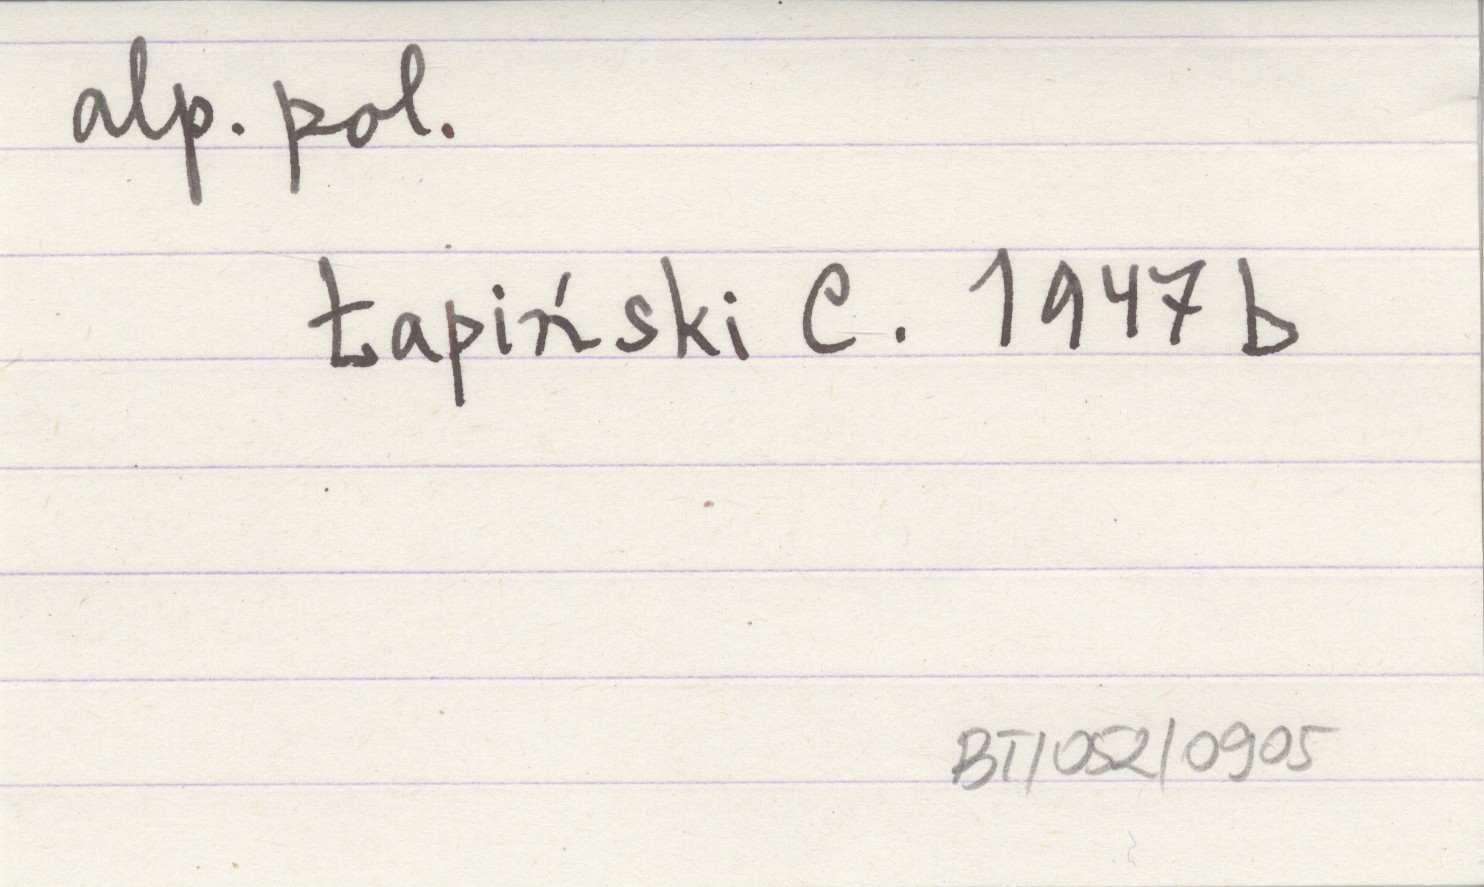 alp. pol.
Łapiński C. 1947 b
BT/052/0905